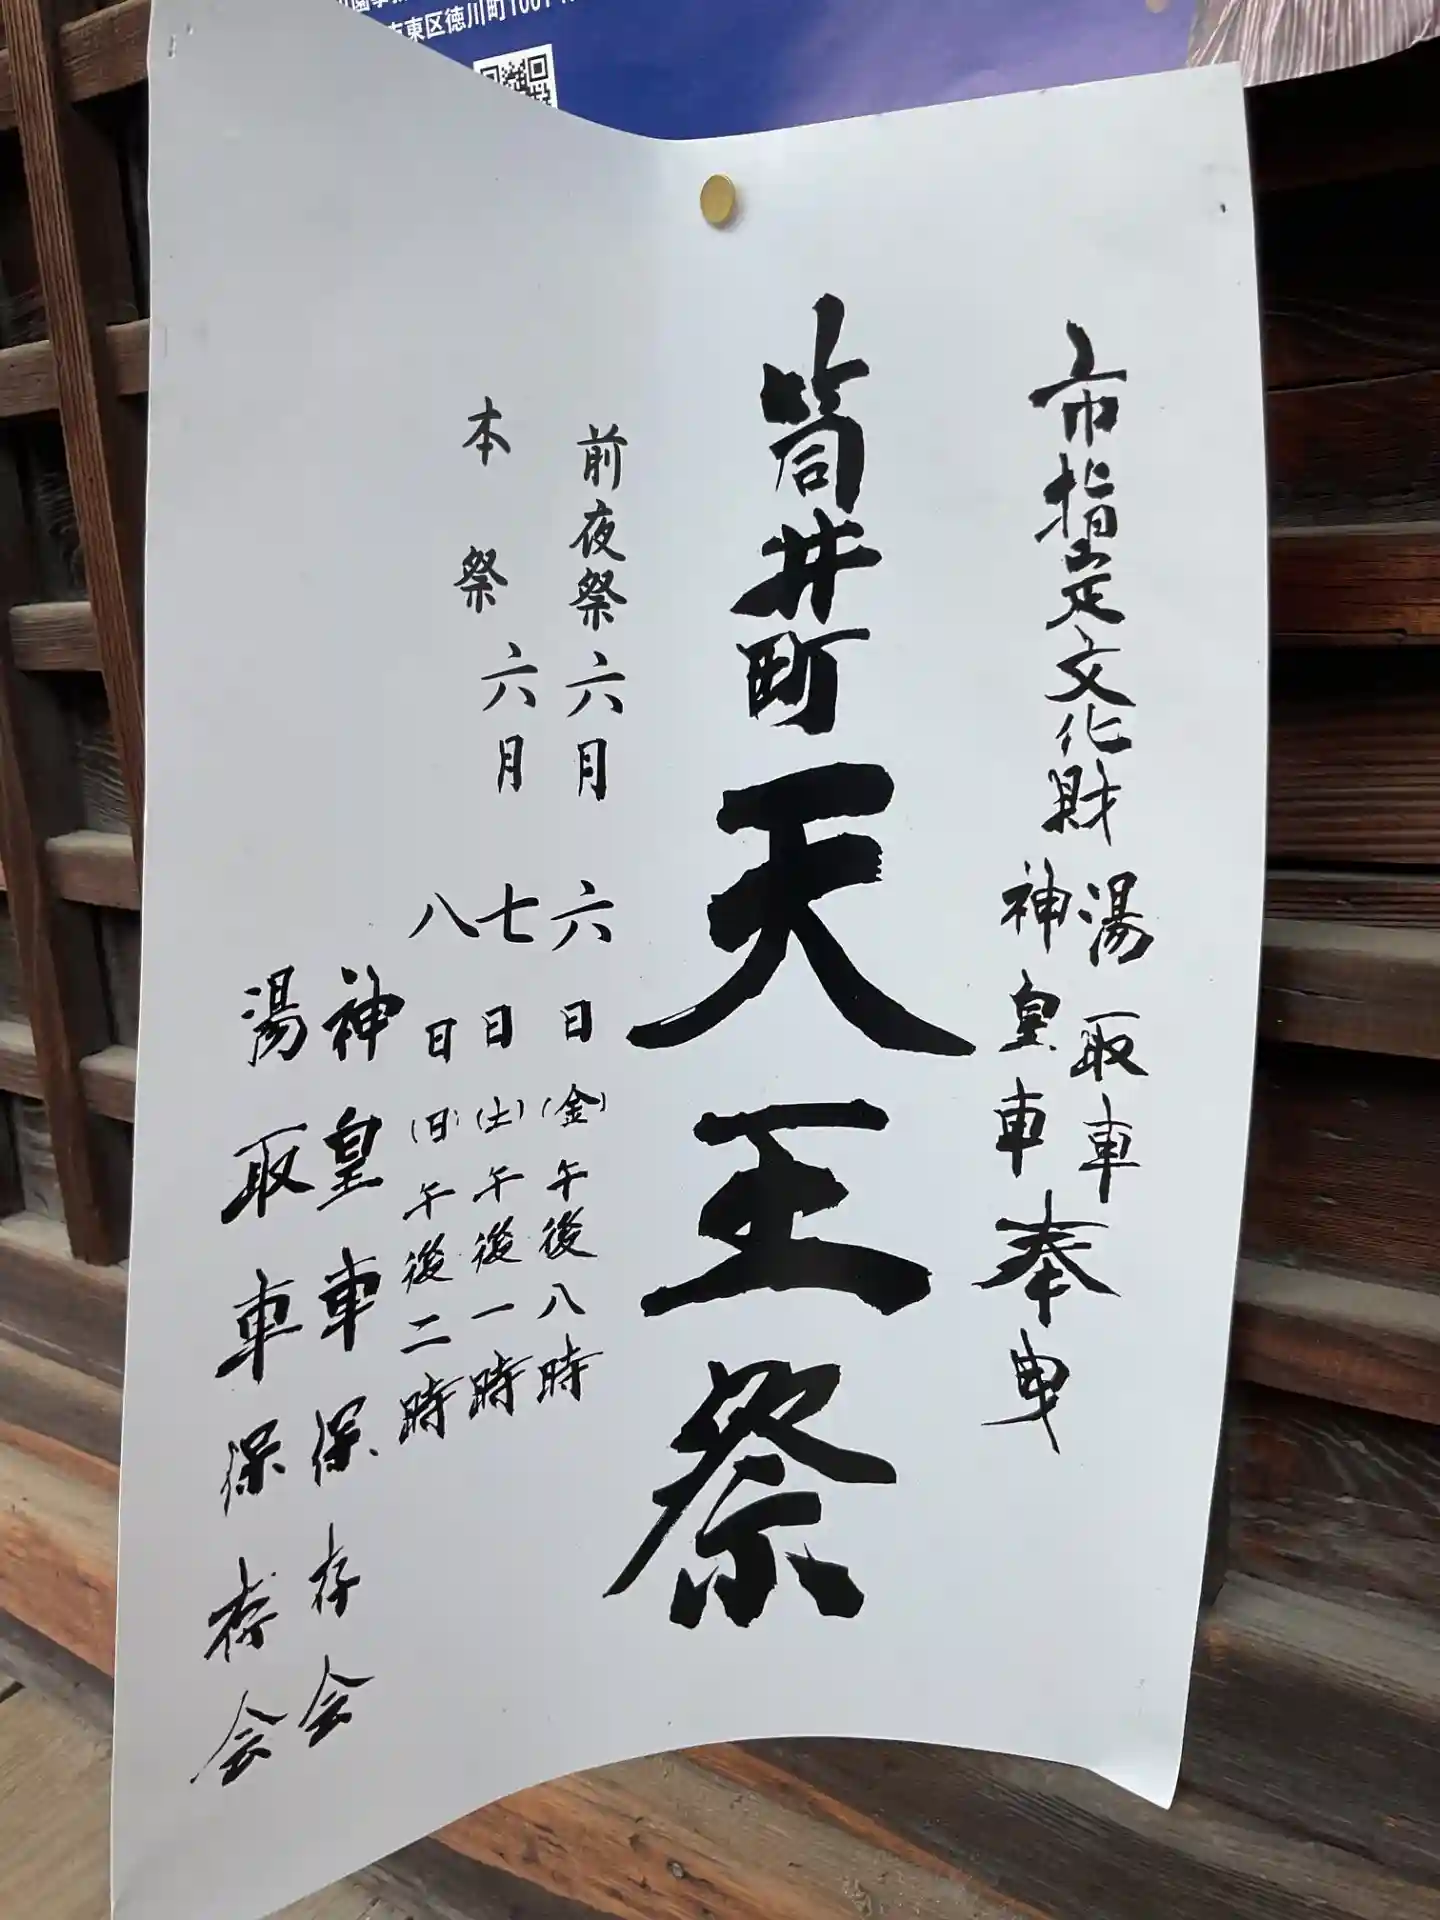 東区徳川町1001
市指定文化財 湯取車 神皇車 奉曳
筒井町天王祭
前夜祭 六月 六日(金)午後八時
本祭 六月 七日(土)午後一時
八日(日)午後二時
神皇車保存会
湯取車保存会